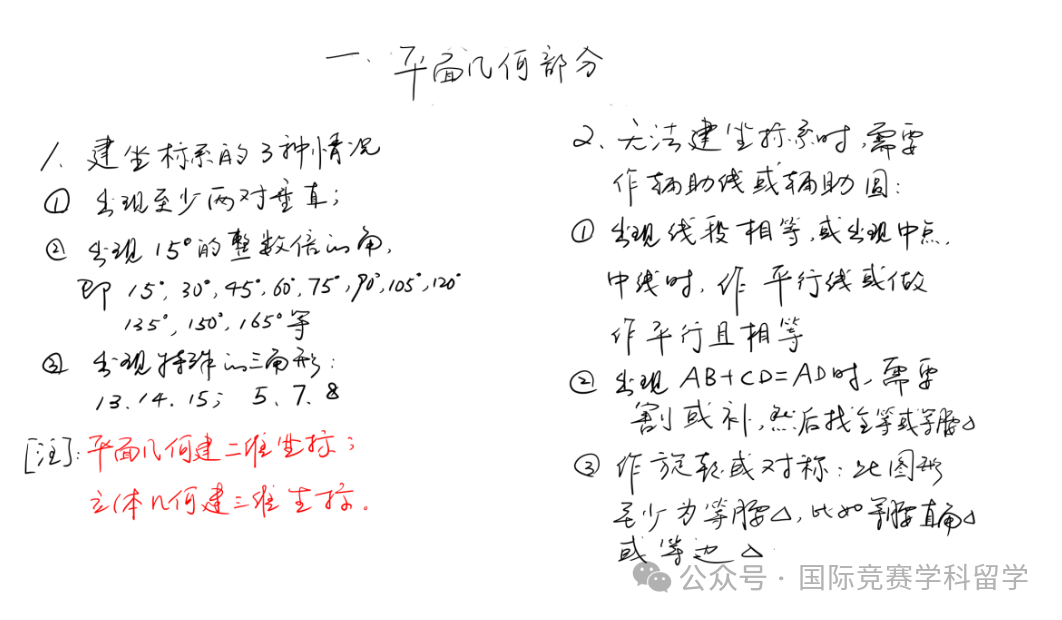 一、平面几何部分
1、建坐标系的3种情况
① 出现至少两对垂直;
② 出现15°的整数倍的角,
即 15°, 30°, 45°, 60°, 75°, 90°, 105°, 120°
135°, 150°, 165°等
③ 出现特殊的三角形:
13. 14. 15; 5、7、8
[注]: 平面几何建二维坐标;
立体几何建三维坐标.
2、无法建坐标系时, 需要
作辅助线或辅助圆:
① 出现线段相等, 或出现中点,
中线时, 作平行线或做
作平行且相等
② 出现 AB+CD=AD时, 需要
割或补, 然后找全等或等腰△
③ 作旋转或对称: 此图形
至少为等腰△, 比如等腰直角△
或等边△
公众号·国际竞赛学科留学